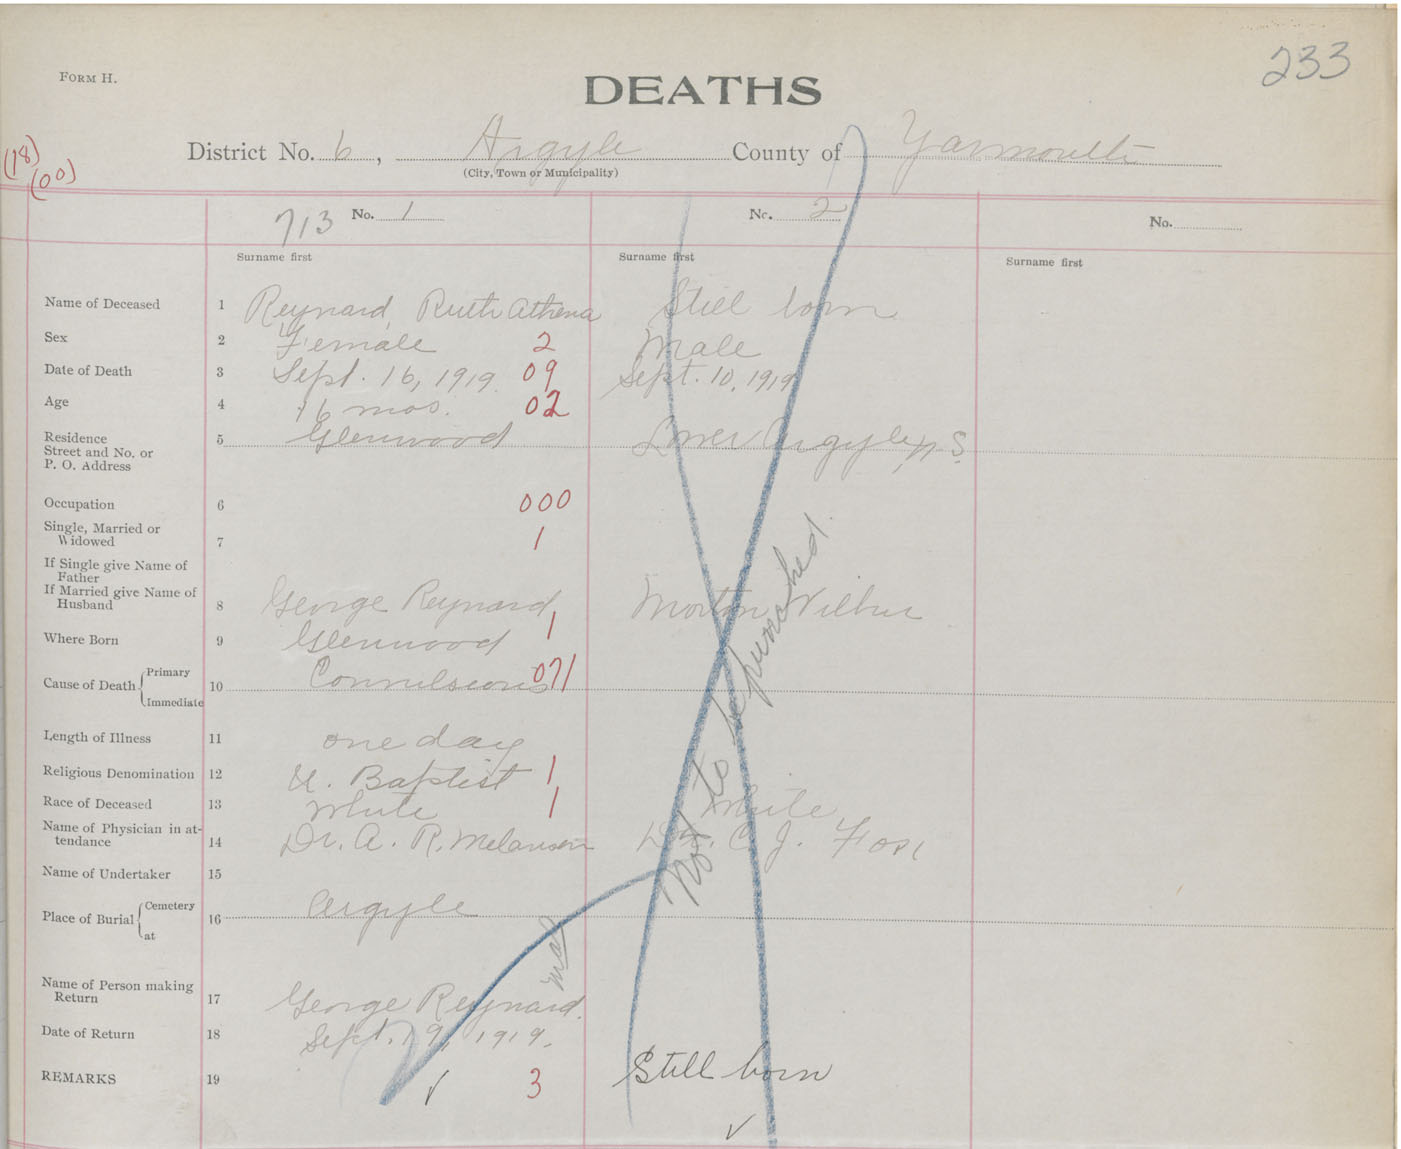 233
FORM H.
DEATHS
District No. 6, Argyle County of Yarmouth
(City, Town or Municipality)
(18)
(00)
713 No. 1 No. 2 No.
Surname first Surname first Surname first
Name of Deceased 1 Reynard, Ruth Athena Still born
Sex 2 Female 2 Male
Date of Death 3 Sept. 16, 1919 09 Sept. 10, 1919
Age 4 16 mos. 02
Residence 5 Glenwood Lower Argyle, N. S.
Street and No. or
P. O. Address
Occupation 6 000
Single, Married or
Widowed 7 1
If Single give Name of
Father
If Married give Name of
Husband 8 George Reynard Morton Wilbur
Where Born 9 Glenwood 1
Cause of Death { Primary
Immediate 10 Convulsions 071
Length of Illness 11 one day
Religious Denomination 12 U. Baptist 1
Race of Deceased 13 White 1 White
Name of Physician in at-
tendance 14 Dr. A. R. Melanson Dr. C. J. Fox
Name of Undertaker 15
Place of Burial { Cemetery
at 16 Argyle
Name of Person making
Return 17 George Reynard.
Date of Return 18 Sept. 19, 1919.
REMARKS 19 ✓ 3 Still born
✓
Not to be punched.